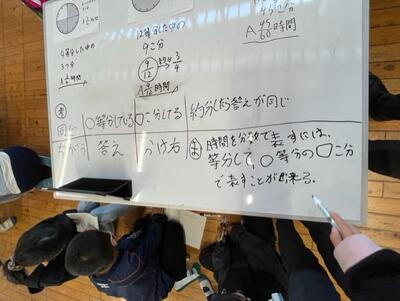 4等分した中の
3つ分
12等分した中の
9こ分
9/12 約分 3/4
A 9/12時間
A 45/60時間
考
同じ ○等分している □こ分してる 約分したら答えが同じ
ちがう 答え 分け方
ま 時間を分数で表すには、
等分して、○等分の□こ分
で表すことが出来る。